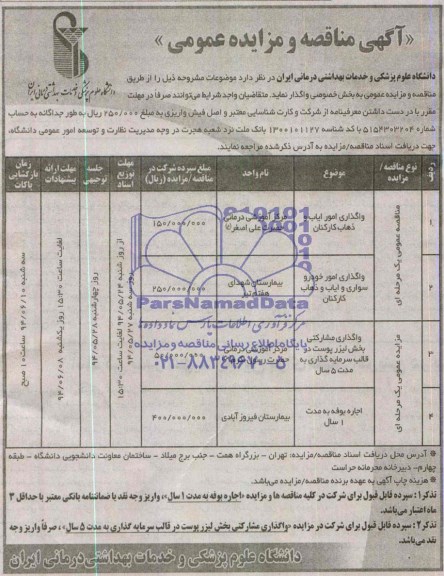 «آگهی مناقصه و مزایده عمومی»
دانشگاه علوم پزشکی و خدمات بهداشتی درمانی ایران
دانشگاه علوم پزشکی و خدمات بهداشتی درمانی ایران در نظر دارد موضوعات مشروحه ذیل را از طریق
مناقصه و مزایده عمومی به بخش خصوصی واگذار نماید. متقاضیان واجد شرایط می‌توانند صرفا در مهلت
مقرر با در دست داشتن معرفینامه از شرکت و کارت شناسایی معتبر و اصل فیش واریزی به مبلغ ۲۵۰/۰۰۰ ریال به طور جداگانه به حساب
شماره ۵۱۵۴۳۰۳۲۰۴ با کد شناسه ۱۳۰۰۱۰۱۱۲۷ بانک ملت نزد شعبه هجرت در وجه مدیریت نظارت و توسعه امور عمومی دانشگاه،
جهت دریافت اسناد مناقصه/مزایده به آدرس ذکر شده مراجعه نمایند.
ردیف
نوع مناقصه / مزایده
موضوع
نام واحد
مبلغ سپرده شرکت در مناقصه/مزایده (ریال)
مهلت توزیع اسناد
جلسه توجیهی
مهلت ارائه پیشنهادات
زمان بازگشایی پاکات
۱
مناقصه عمومی یک مرحله ای
واگذاری امور ایاب و ذهاب کارکنان
مرکز آموزشی درمانی حضرت علی اصغر(ع)
۱۵۰/۰۰۰/۰۰۰
۲
واگذاری امور خودرو سواری و ایاب و ذهاب کارکنان
بیمارستان شهدای هفتم تیر
۲۵۰/۰۰۰/۰۰۰
۳
مزایده عمومی یک مرحله ای
واگذاری مشارکتی بخش لیزر پوست در قالب سرمایه گذاری به مدت ۵ سال
مرکز آموزشی درمانی حضرت رسول اکرم
۴
اجاره بوفه به مدت ۱ سال
بیمارستان فیروز آبادی
۴۰۰/۰۰۰/۰۰۰
از روز شنبه ۹۴/۰۵/۲۴ لغایت ساعت ۱۵:۳۰
روز سه شنبه ۹۴/۰۵/۲۷
روز چهارشنبه ۹۴/۰۵/۲۸
لغایت ساعت ۱۵:۳۰ روز یکشنبه ۹۴/۰۶/۰۸
سه شنبه ۹۴/۰۶/۱۰ ساعت ۱۰ صبح
ParsNamadData
مرکز فرآوری اطلاعات پارس نماد داده‌ها
پایگاه اطلاع رسانی مناقصه و مزایده
۰۲۱-۸۸۳۴۹۶۷۰-۵
* آدرس محل دریافت اسناد مناقصه/مزایده: تهران - بزرگراه همت - جنب برج میلاد - ساختمان معاونت دانشجویی دانشگاه - طبقه
چهارم- دبیرخانه محرمانه حراست
* هزینه چاپ آگهی به عهده برنده مناقصه/مزایده می‌باشد.
تذکر۱: سپرده قابل قبول برای شرکت در کلیه مناقصه ها و مزایده «اجاره بوفه به مدت ۱ سال»، واریز وجه نقد یا ضمانتنامه بانکی معتبر با حداقل ۳
ماه اعتبار می‌باشد.
تذکر۲: سپرده قابل قبول برای شرکت در مزایده «واگذاری مشارکتی بخش لیزر پوست در قالب سرمایه گذاری به مدت ۵ سال»، صرفاً واریز وجه
نقد می‌باشد.
دانشگاه علوم پزشکی و خدمات بهداشتی درمانی ایران